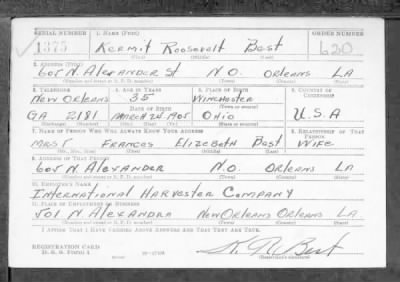 SERIAL NUMBER 1. NAME (Print) ORDER NUMBER
1375 Kermit Roosevelt Best 620
(First) (Middle) (Last)
2. ADDRESS (Print)
605 N. Alexander St N.O. Orleans LA
(Number and street or R. F. D. number) (Town) (County) (State)
3. TELEPHONE 4. AGE IN YEARS 5. PLACE OF BIRTH 6. COUNTRY OF CITIZENSHIP
New Orleans 35 Winchester
DATE OF BIRTH (Town or county)
GA 2181 March 24 1905 Ohio U.S.A
(Exchange) (Number) (Mo.) (Day) (Yr.) (State or country)
7. NAME OF PERSON WHO WILL ALWAYS KNOW YOUR ADDRESS 8. RELATIONSHIP OF THAT PERSON
Mrs Frances Elizebeth Best Wife
(Mr., Mrs., Miss) (First) (Middle) (Last)
9. ADDRESS OF THAT PERSON
605 N. Alexander N.O. Orleans LA
(Number and street or R. F. D. number) (Town) (County) (State)
10. EMPLOYER'S NAME
International Harvester Company
11. PLACE OF EMPLOYMENT OR BUSINESS
501 N Alexandra New Orleans Orleans LA.
(Number and street or R. F. D. number) (Town) (County) (State)
I AFFIRM THAT I HAVE VERIFIED ABOVE ANSWERS AND THAT THEY ARE TRUE.
REGISTRATION CARD
D. S. S. Form 1
K. R. Best
(Registrant's signature)